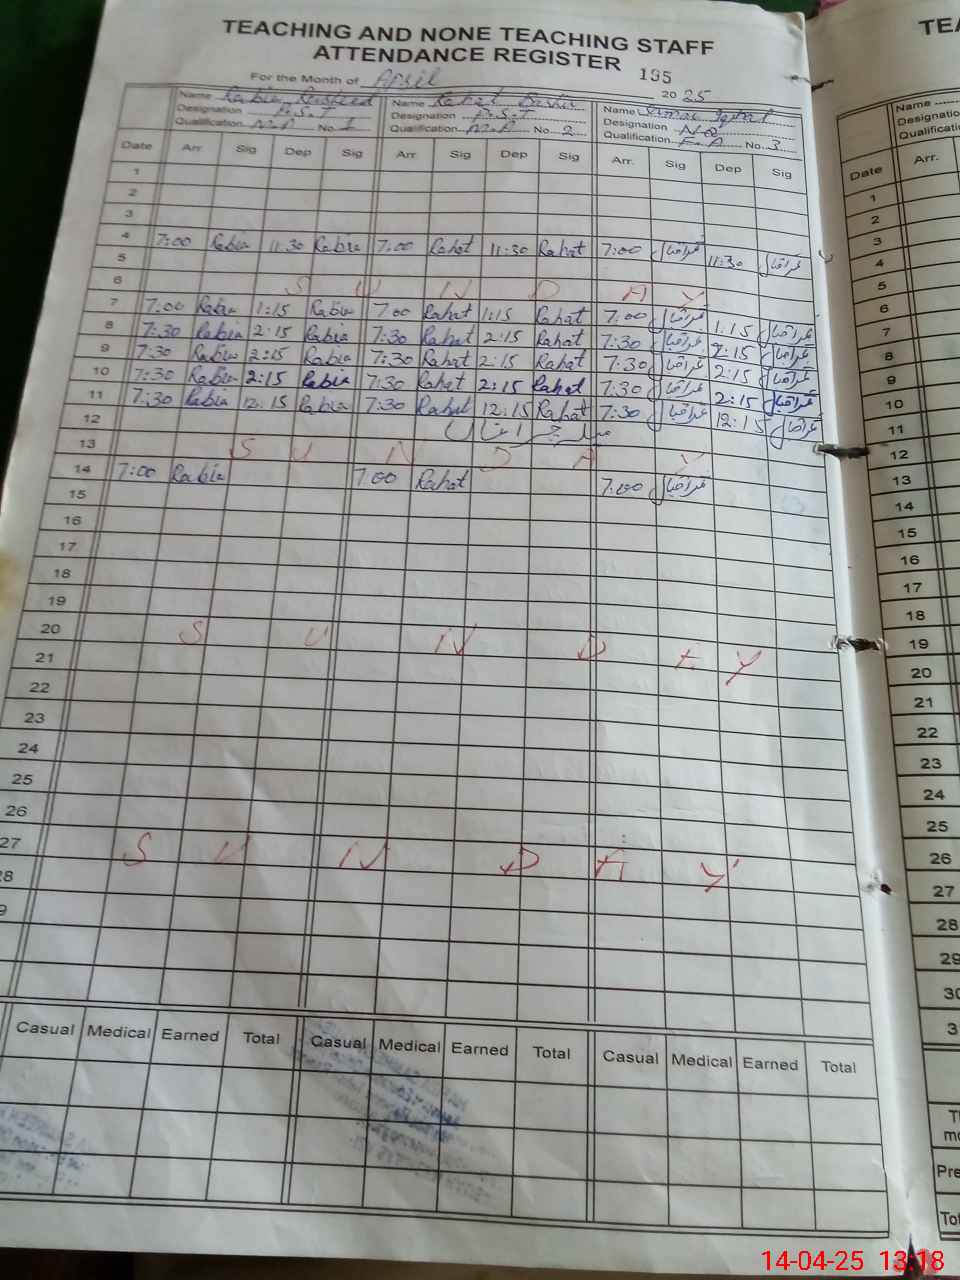 TEACHING AND NONE TEACHING STAFF
ATTENDANCE REGISTER 195
For the Month of April 2025
Name Rabia Rasheed Name Rahat Bashir Name Iqbal
Designation P.S.T Designation P.S.T Designation N.Q
Qualification M.A No. 1 Qualification M.A No. 2 Qualification F.A No. 3
Date Arr. Sig Dep Sig Arr Sig Dep Sig Arr. Sig Dep Sig
1
2
3
4 7:00 Rabia 11:30 Rabia 7:00 Rahat 11:30 Rahat 7:00 11:30
5
6 S U N D A Y
7 7:00 Rabia 1:15 Rabia 7:00 Rahat 1:15 Rahat 7:00 1:15
8 7:30 Rabia 2:15 Rabia 7:30 Rahat 2:15 Rahat 7:30 2:15
9 7:30 Rabia 2:15 Rabia 7:30 Rahat 2:15 Rahat 7:30 2:15
10 7:30 Rabia 2:15 Rabia 7:30 Rahat 2:15 Rahat 7:30 2:15
11 7:30 Rabia 12:15 Rabia 7:30 Rahat 12:15 Rahat 7:30 12:15
12
13 S U N D A Y
14 7:00 Rabia 7:00 Rahat 7:00
15
16
17
18
19
20 S U N D A Y
21
22
23
24
25
26
27 S U N D A Y
28
9
Casual Medical Earned Total Casual Medical Earned Total Casual Medical Earned Total
TEA
Name
Designation
Qualificati
Date Arr.
1
2
3
4
5
6
7
8
9
10
11
12
13
14
15
16
17
18
19
20
21
22
23
24
25
26
27
28
29
30
3
Pre
Tot
14-04-25 13:18